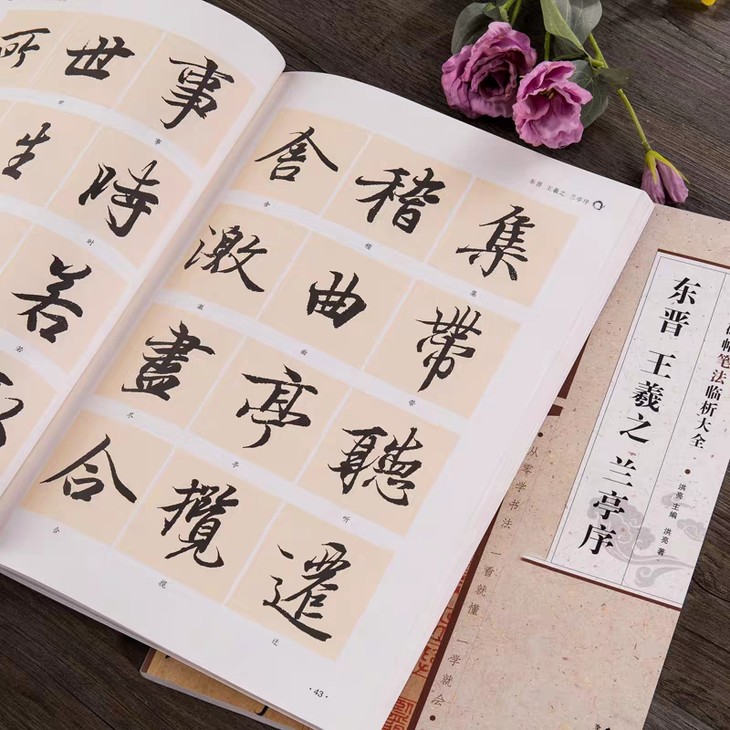 所 世 事
世 事
生 時
时
若
若
东晋 王羲之 兰亭序
舍 稽 集
舍 稽 集
激 曲 帶
激 曲 带
盡 亭 聽
尽 亭 听
合 攬 遷
合 揽 迁
·43·
帖笔法临析大全
东晋 王羲之 兰亭序
●洪亮 主编 洪亮 著
●从零学书法 一看就懂 一学就会